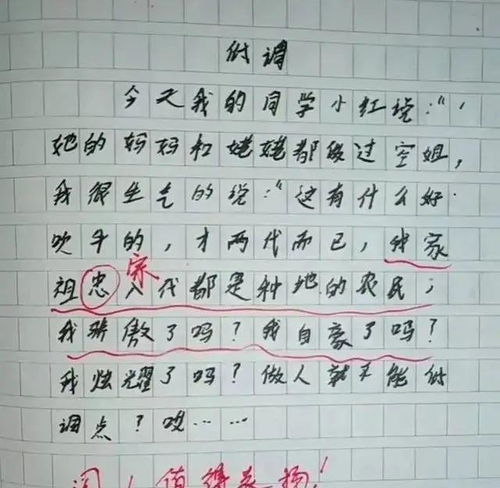 低调
今天我的同学小红说:“
她的妈妈和姥姥都做过空姐,
我很生气的说:“这有什么好
吹牛的,才两代而已,我家
宗
祖忠八代都是种地的农民;
我骄傲了吗?我自豪了吗?
我炫耀了吗?做人就不能低
调点?哎……
值得表扬!